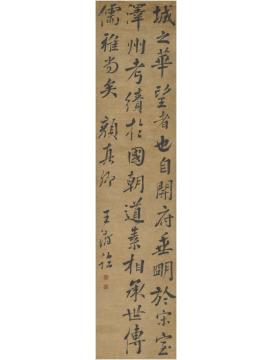 城之華望者也自開府垂明於宋室
澤州考績於國朝道素相承世傳
儒雅尚矣 顏真卿
王澍臨